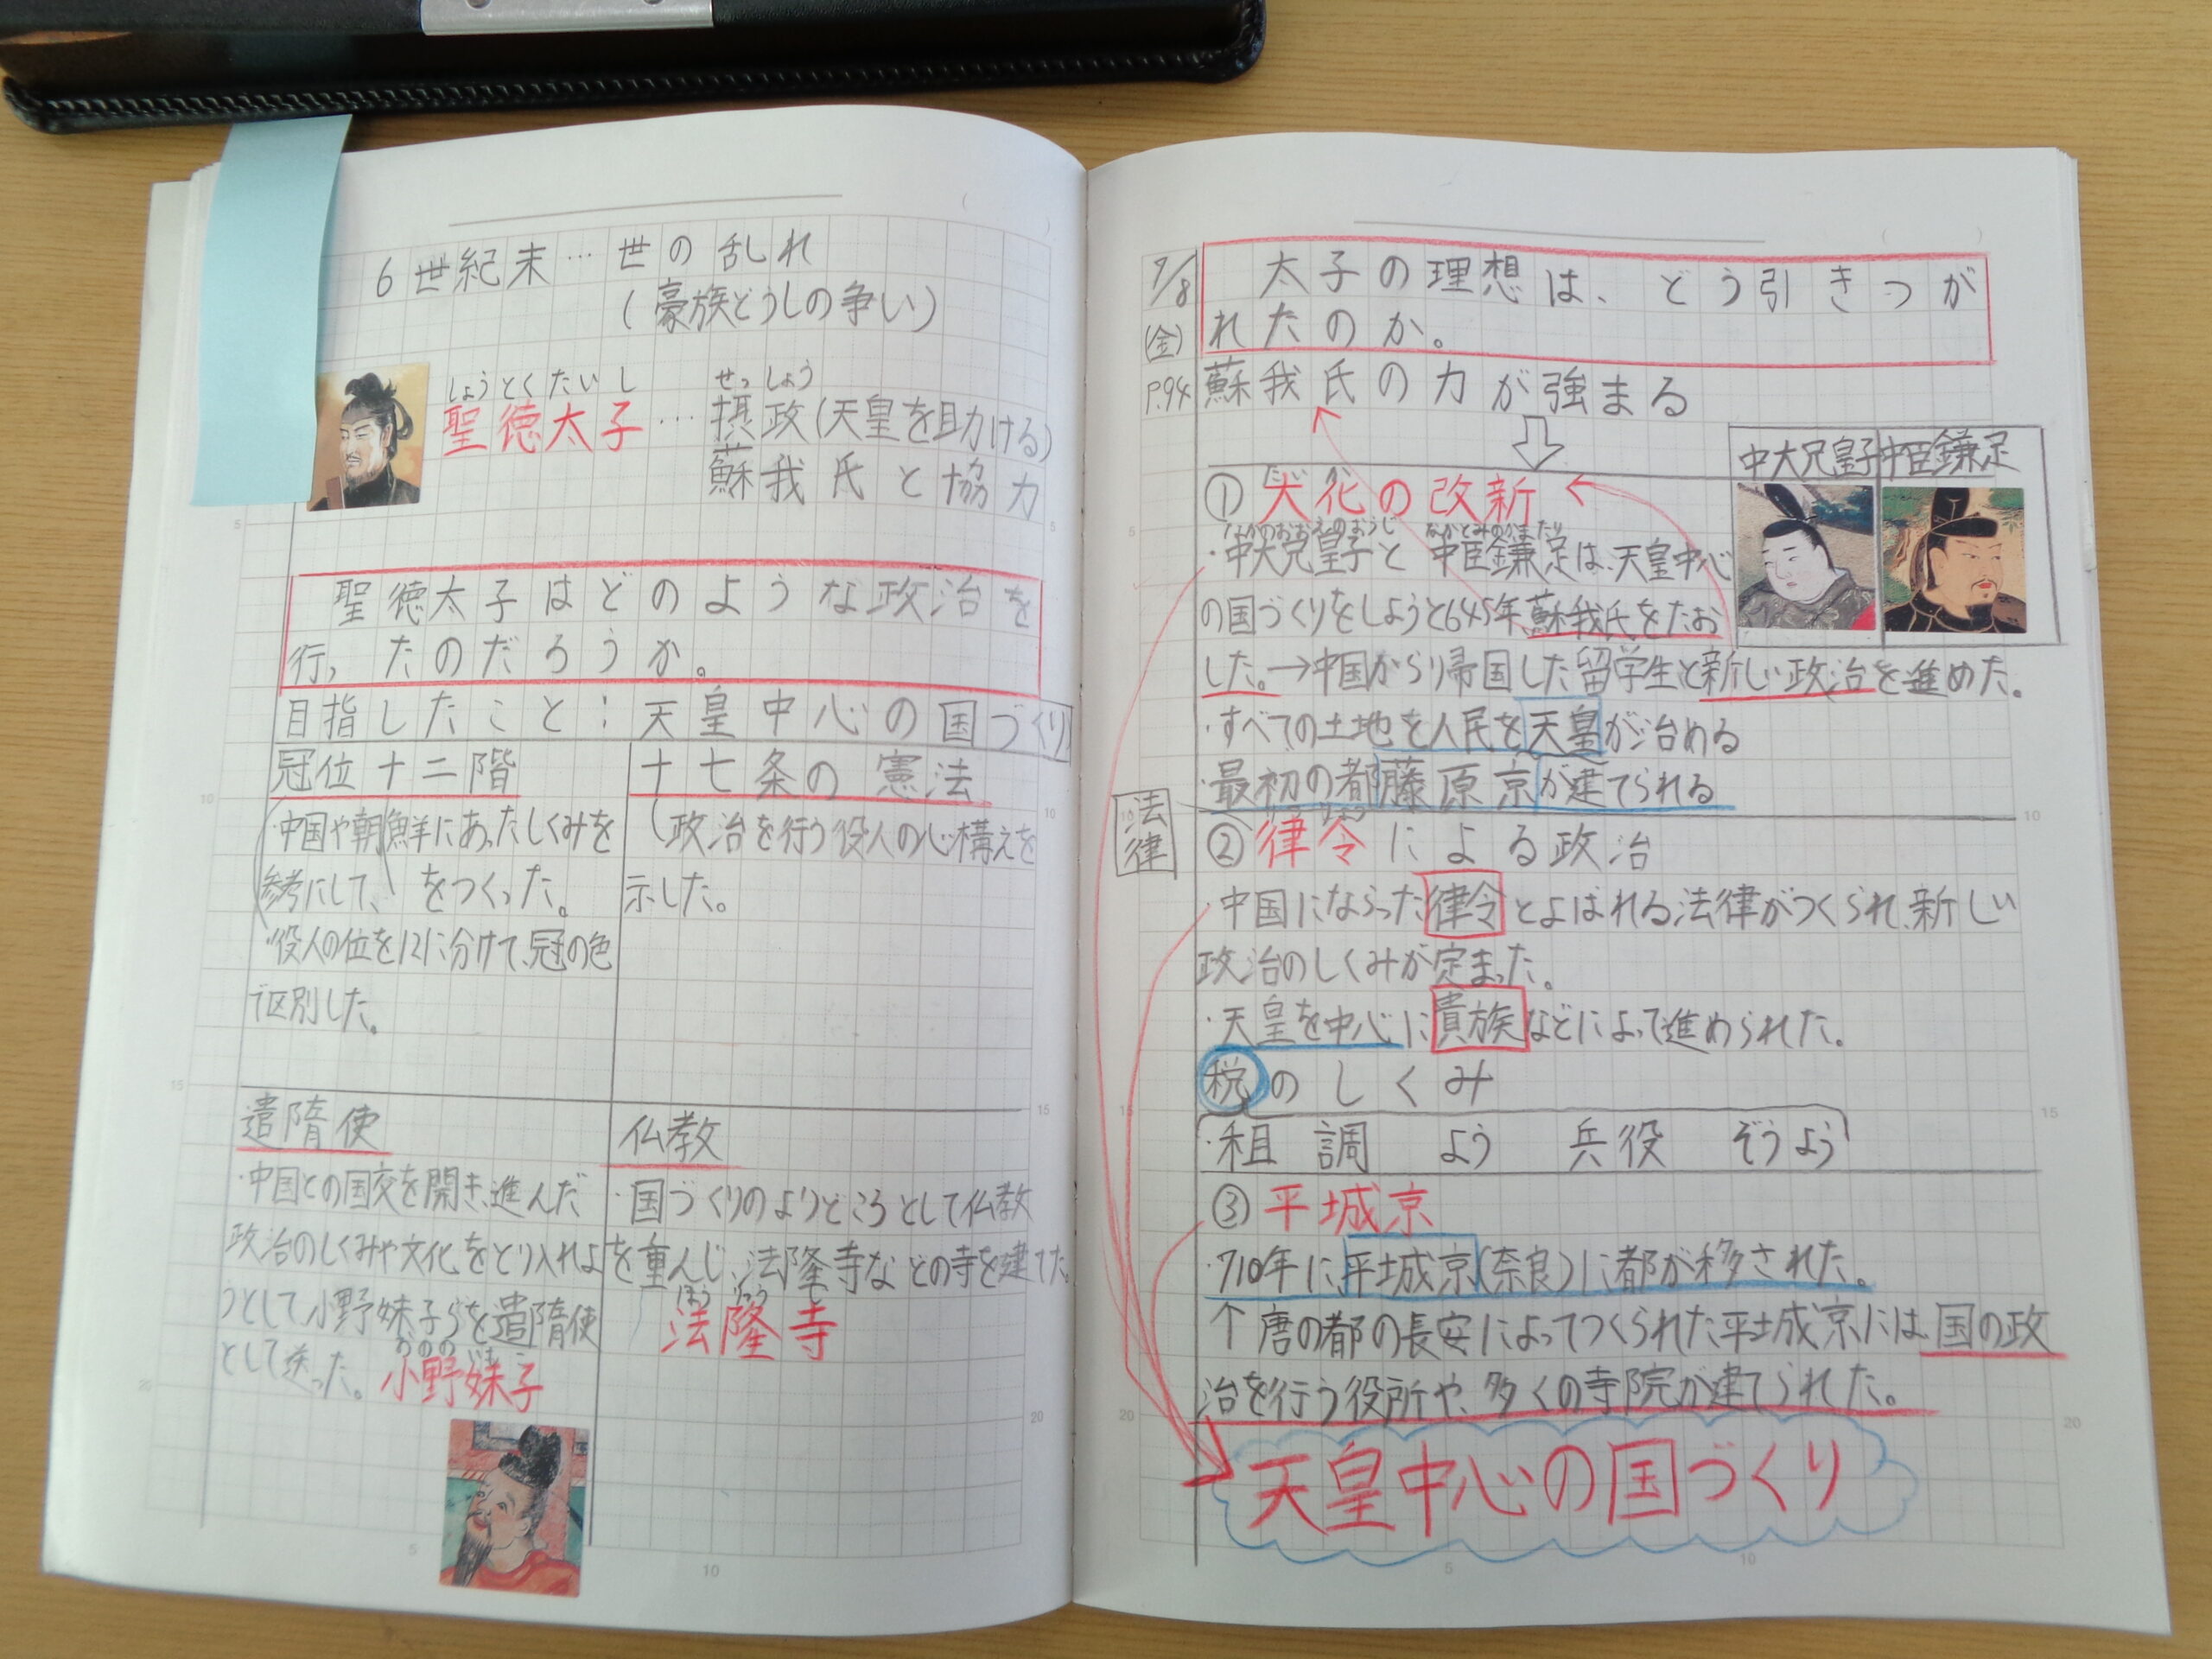 6世紀末…世の乱れ
(豪族どうしの争い)
しょうとくたいし
せっしょう
聖徳太子…摂政(天皇を助ける)
蘇我氏と協力
聖徳太子はどのような政治を
行ったのだろうか。
目指したこと:天皇中心の国づくり
冠位十二階
・中国や朝鮮にあったしくみを
参考にして、をつくった。
・役人の位を12に分けて、冠の色
で区別した。
十七条の憲法
政治を行う役人の心構えを
示した。
遣隋使
・中国との国交を開き、進んだ
政治のしくみや文化をとり入れよ
うとして小野妹子らを遣隋使
として送った。
おののいもこ
小野妹子
仏教
・国づくりのよりどころとして仏教
を重んじ、法隆寺などの寺を建てた。
ほうりゅうじ
法隆寺
5
10
15
20
5
10
7/8
(金)
P.94
太子の理想は、どう引きつが
れたのか。
蘇我氏の力が強まる
中大兄皇子
中臣鎌足
①大化の改新
なかのおおえのおうじ
なかとみのかまたり
・中大兄皇子と中臣鎌足は、天皇中心
の国づくりをしようと645年蘇我氏をたお
した。→中国から帰国した留学生と新しい政治を進めた。
・すべての土地を人民を天皇が治める
・最初の都藤原京が建てられる
法律
②律令による政治
・中国にならった律令とよばれる法律がつくられ、新しい
政治のしくみが定まった。
・天皇を中心に貴族などによって進められた。
税のしくみ
・租 調 よう 兵役 ぞうよう
③平城京
・710年に平城京(奈良)に都が移された。
↑唐の都の長安によってつくられた平城京には国の政
治を行う役所や、多くの寺院が建てられた。
天皇中心の国づくり
5
10
15
20
5
10